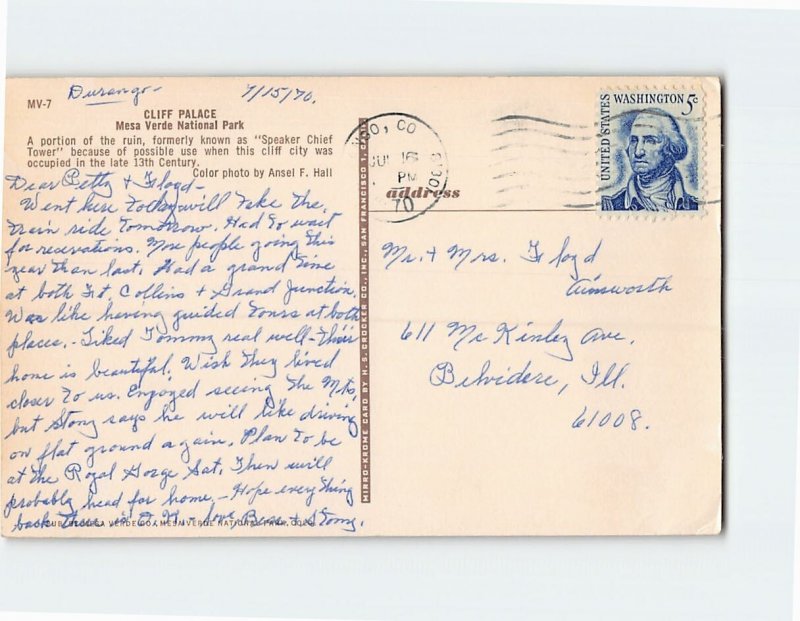 Durango - 7/15/70.
MV-7
CLIFF PALACE
Mesa Verde National Park
A portion of the ruin, formerly known as "Speaker Chief
Tower" because of possible use when this cliff city was
occupied in the late 13th Century.
Color photo by Ansel F. Hall
Dear Betty & Floyd -
Went here today will take the
train ride tomorrow. Had to wait
for reservations. More people going this
year than last. Had a grand time
at both Ft. Collins & Grand Junction.
Was like having guided tours at both
places. - Liked Tommy real well - their
home is beautiful. Wish they lived
closer to us. Enjoyed seeing the Mts,
but Stony says he will like driving
on flat ground again. Plan to be
at the Royal Gorge Sat. Then will
probably head for home. - Hope everything
back there is O.K. - love, & Stony.
PUB. BY MESA VERDE CO., MESA VERDE NATIONAL PARK, COLO.
MIRRO-KROME CARD BY H. S. CROCKER CO., INC., SAN FRANCISCO 1, CALIF.
CO
JUL 16
PM
70
81301
UNITED STATES
WASHINGTON 5c
address
Mr. + Mrs. Floyd
Ainsworth
611 Mc Kinley Ave.
Belvidere, Ill.
61008.